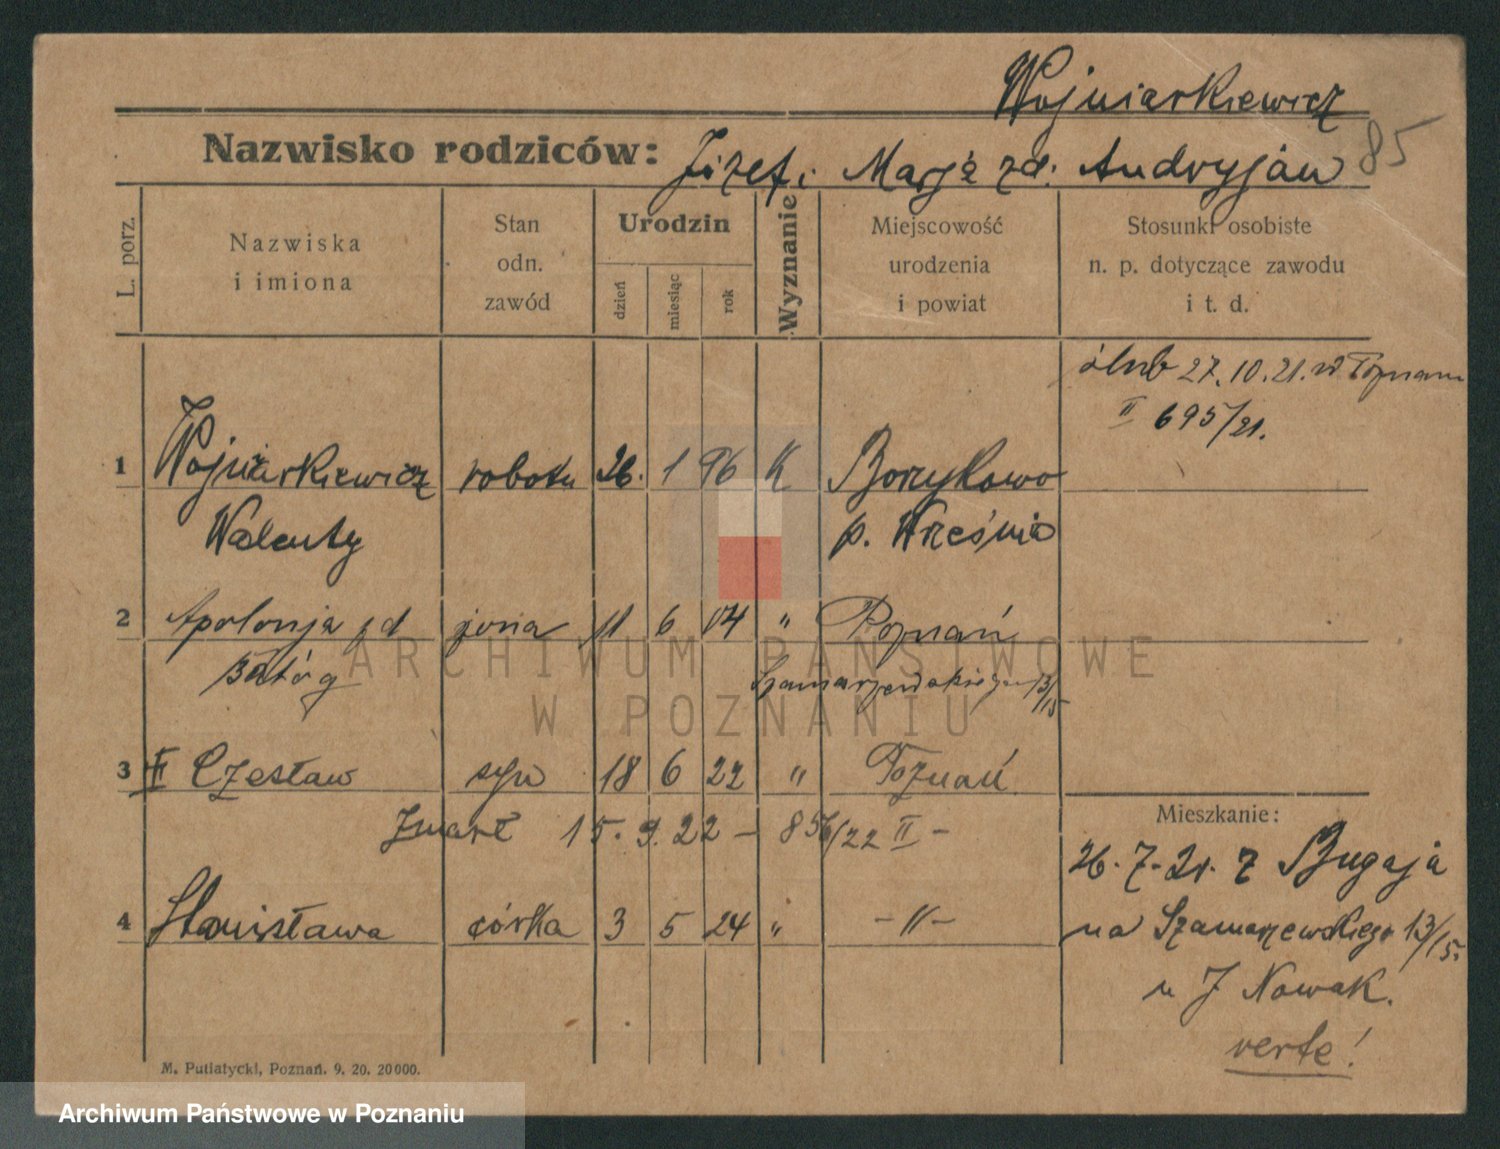 Wojniarkiewicz
85
Nazwisko rodziców: Józef i Marja zd. Andryjan
L. porz.
Nazwiska i imiona
Stan odn. zawód
Urodzin
dzień
miesiąc
rok
Wyznanie
Miejscowość urodzenia i powiat
Stosunki osobiste n. p. dotyczące zawodu i t. d.
ślub 27.10.21. w Poznaniu
II 695/21.
1 Wojniarkiewicz robotn 26. 1 96 K Borzykowo
Walenty p. Września
2 Apolonja zd żona 11 6 04 " Poznań
Batóg Szamarzewskiego 13/15
3 II Czesław syn 18 6 22 " Poznań
Zmarł 15. 9. 22 – 856/22 II –
Mieszkanie:
26.7.21. z Bugaja
4 Stanisława córka 3 5 24 " –"–
na Szamarzewskiego 13/15.
u J Nowak.
verte!
M. Putiatycki, Poznań. 9. 20. 20000.
ARCHIWUM PAŃSTWOWE
W POZNANIU
Archiwum Państwowe w Poznaniu